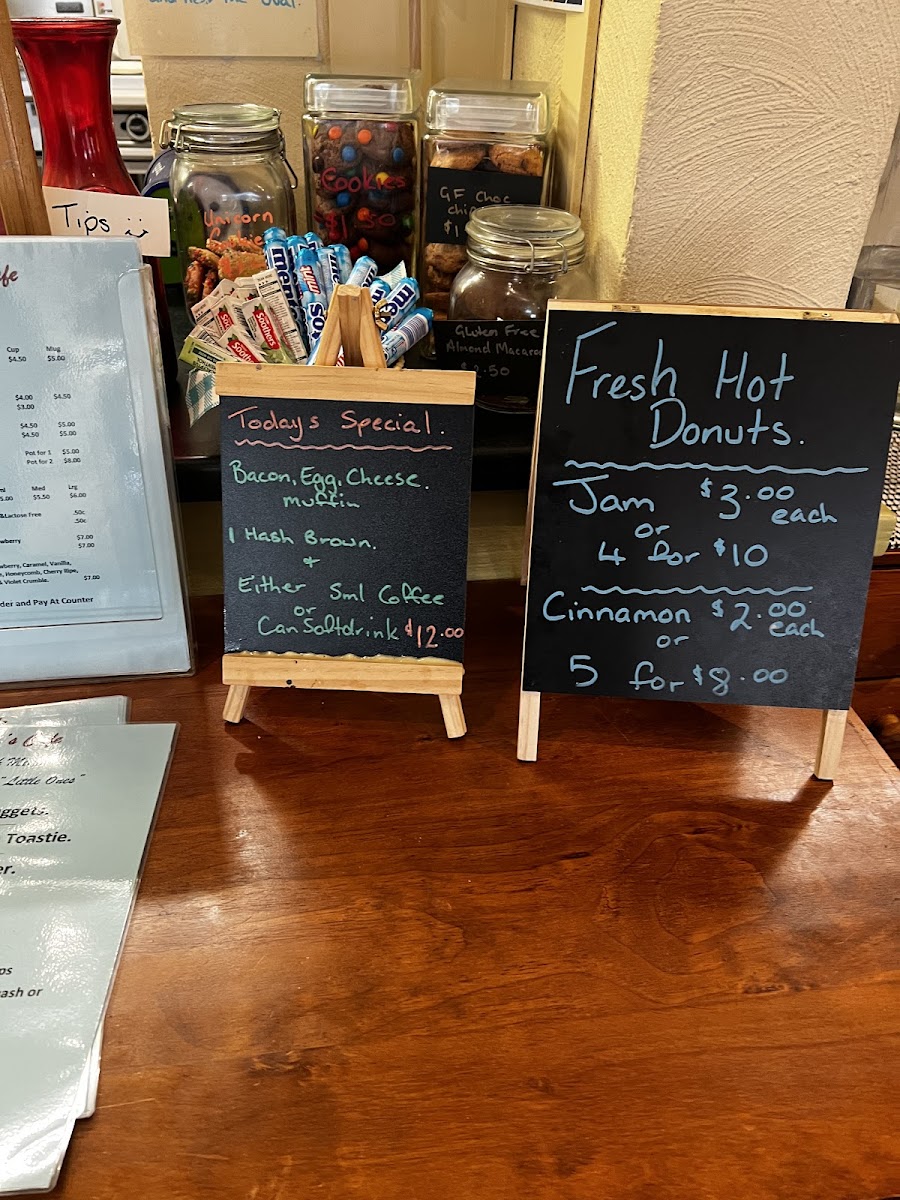 Tips
Unicorn
Cookies
$1.50
GF Choc
Gluten Free
Almond Macaro
.50
mentos
Soothers
Cup Mug
$4.50 $5.00
$4.00 $4.50
$3.00
$4.50 $5.00
$4.50 $5.00
Pot for 1 $5.00
Pot for 2 $8.00
Med Lrg
5.00 $5.50 $6.00
&Lactose Free .50c
.50c
$7.00
$7.00
wberry, Caramel, Vanilla,
, Honeycomb, Cherry Ripe,
& Violet Crumble. $7.00
der and Pay At Counter
Todays Special.
Bacon, Egg, Cheese.
muffin
1 Hash Brown.
+
Either Sml Coffee
or
Can Softdrink $12.00
Fresh Hot
Donuts.
Jam $3.00
each
or
4 for $10
Cinnamon $2.00
each
or
5 for $8.00
's Cafe
"Little Ones"
ggets.
Toastie.
er.
ps
ash or